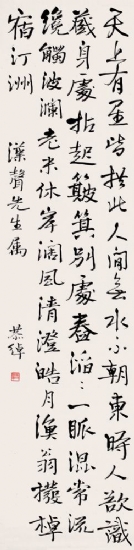 天上有星皆拱北人間無水不朝東時人欲識
藏身處拈起簸箕別處舂滔〻一脈混常流
纔觸波瀾老未休岸闊風清澄皓月漁翁撥棹
宿汀洲
漢聲先生屬
恭綽